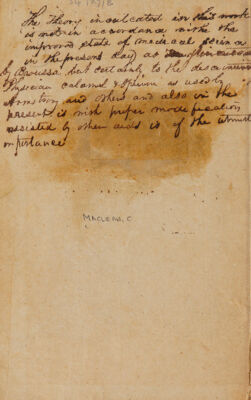 The Theory inculcated in this work
is not in accordance with the
improved state of medical science
in the present day as
by Broussa. but certainly to the discerning
Physician calomel & Opium as used by
Armstrong and others and also in the
present is with proper modification
assisted by other aids is of the utmost
importance
MACLEAN, C